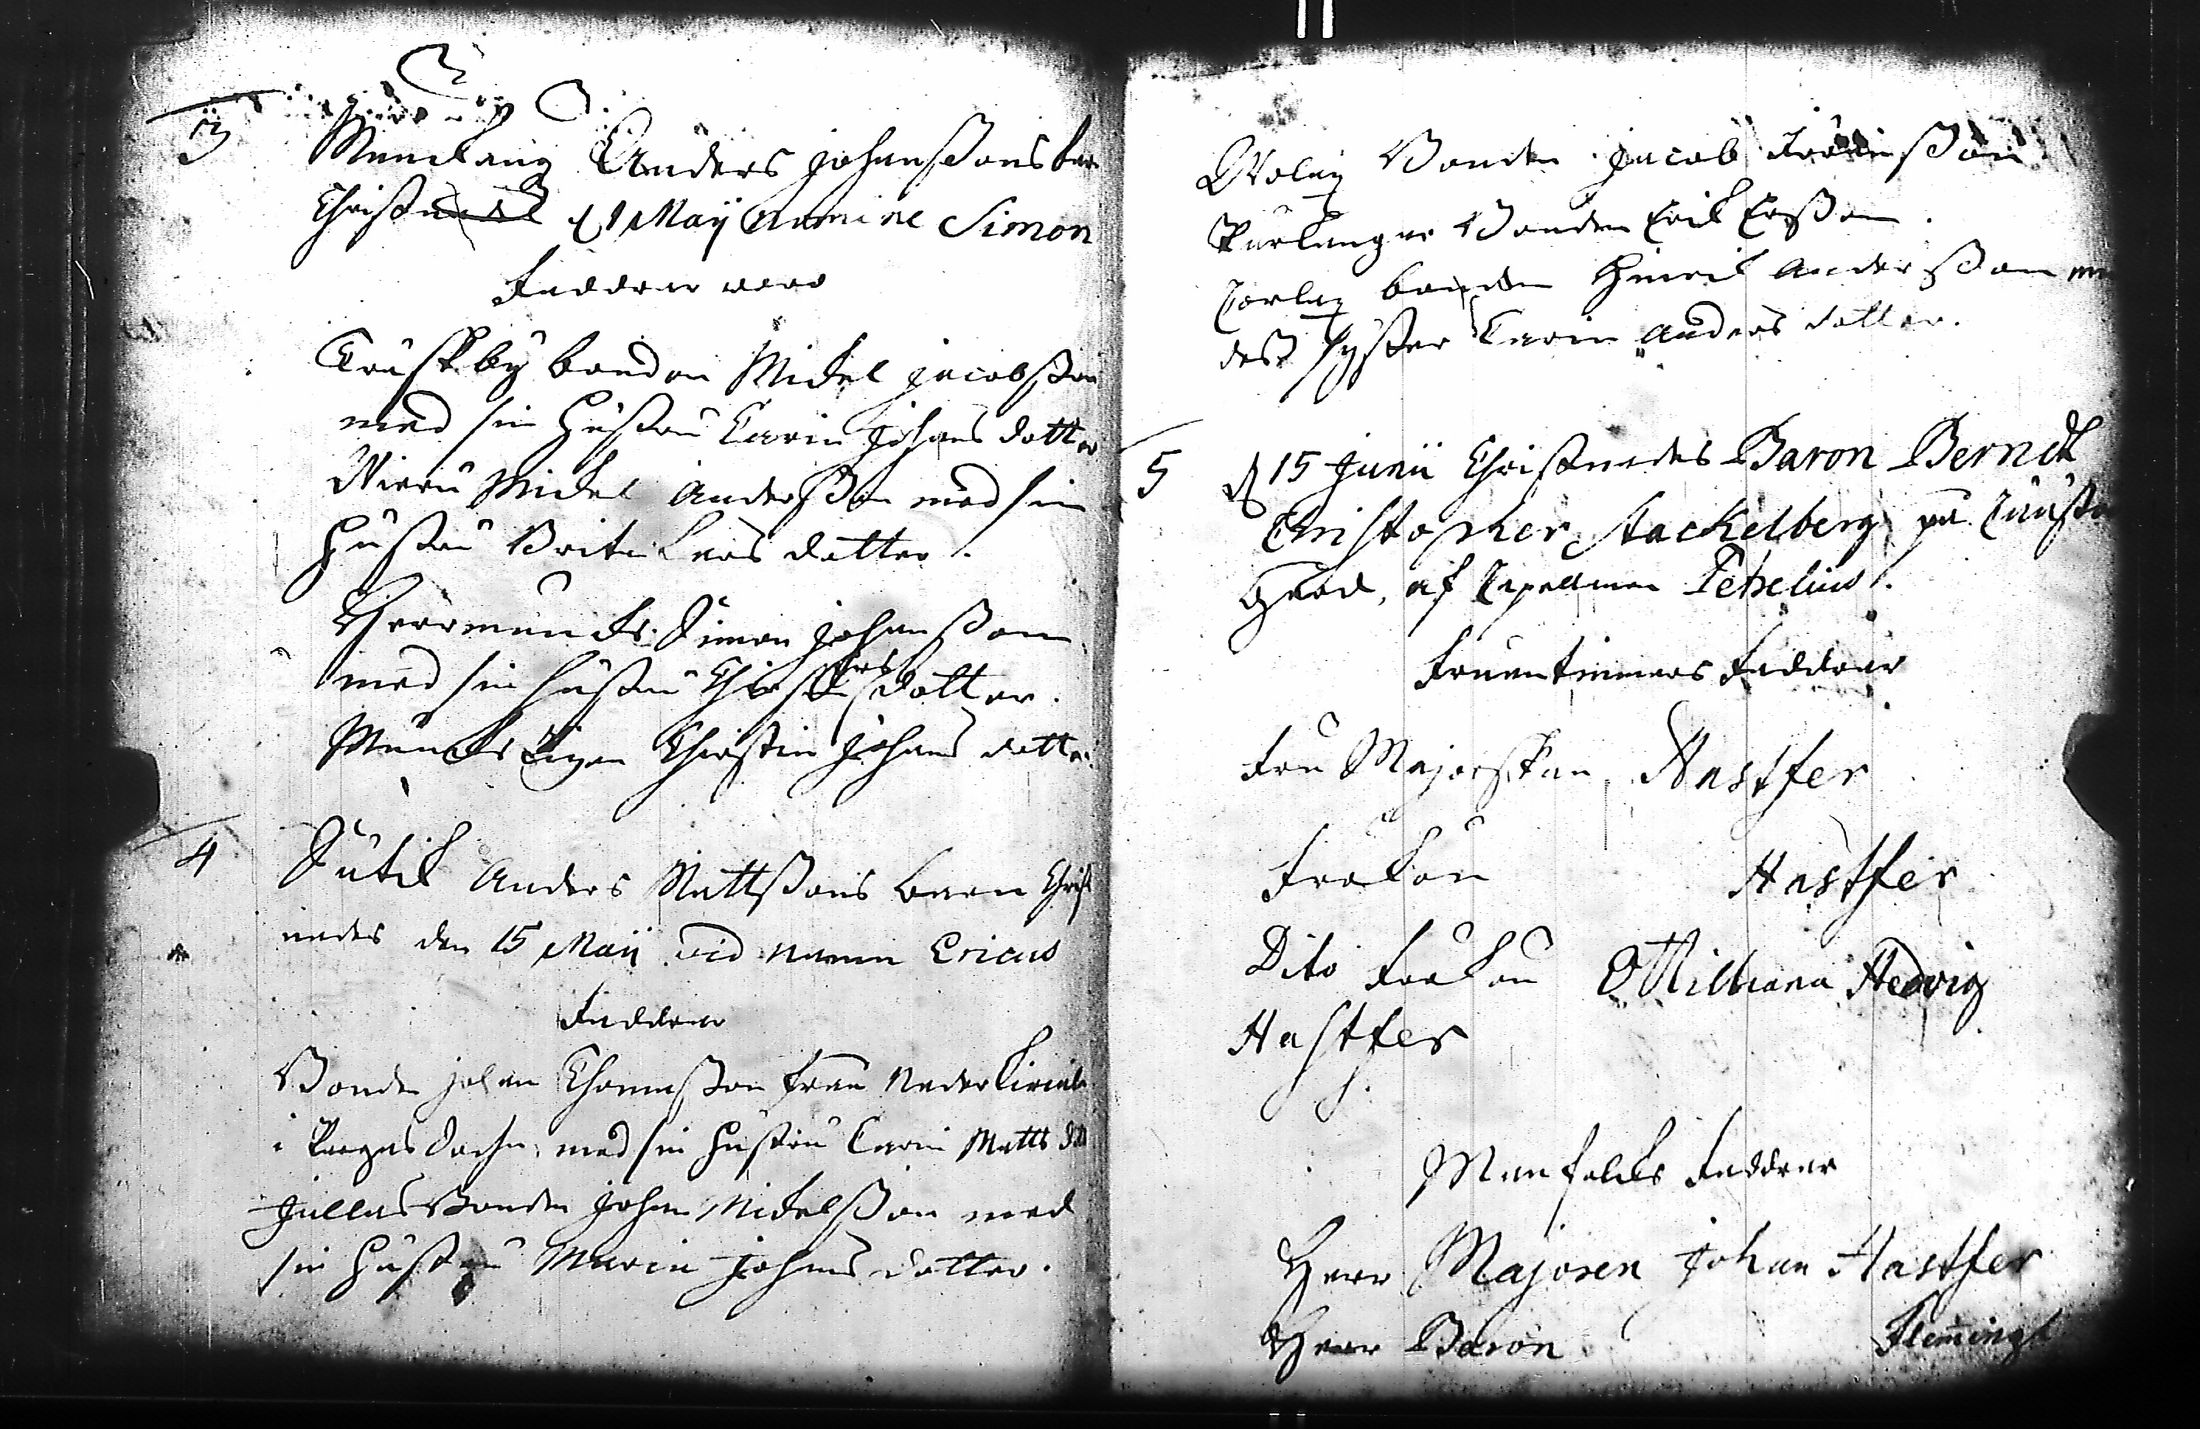 3 Muncksnig Anders Johanßons bar
Christnades d 1 Maij nomine Simon
Faddrar wore
Träskby bonden Michel Jacobßon
med sin hustru Carin Johans dotter
Wieru Michel Anderßon med sin
hustru Brita Lars dotter.
Herrmunds Simon Johanßon
med sin hustru Christin dotter.
Muncks Pigan Christin Johans dotter.
4 Sutik Anders Mattßons barn Christ
nades den 15 Maii vid namn Ericus
Faddrar
Bonden Johan Thomaßon från Nederkirial
i Pargas Sochn, med sin hustru Carin Matts dtt
Jullas Bonden Johan Michelßon med
sin hustru Marin Johans dotter.
Bonden Jacob ßon
Bonden Erik Erßon.
bonden Hinrik Anderßon m
deß syster Carin Anders dotter.
5 d 15 Junii Christnades Baron Berndt
Christopher Stackelberg på
Gård, af Capellanen Petrelius.
Fruentimmers Faddrar
Fru Majorskan Hastfer
Fröken Hastfer
Dito Fröken Ottilliana Hedvig
Hastfer
Manfolcks Faddrar
Herr Majoren Johan Hastfer
Herr Baron Flemming